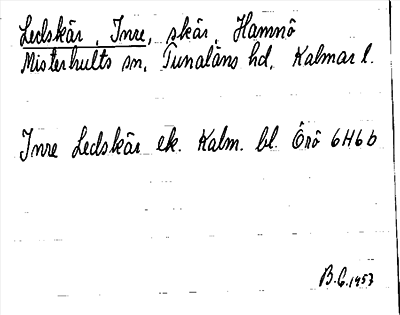 Ledskär, Inre, skär, Hamnö
Misterhults sn, Tunaläns hd, Kalmar l.
Inre Ledskär ek. Kalm. bl. Örö 6H6b
B.G. 1957